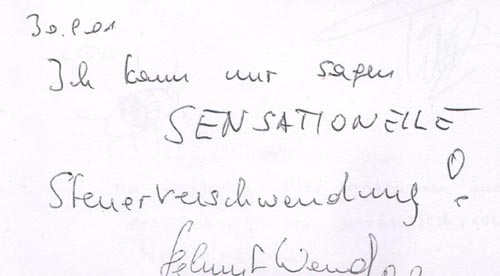 Ich kann nur sagen
SENSATIONELLE
Steuerverschwendung!
Helmut